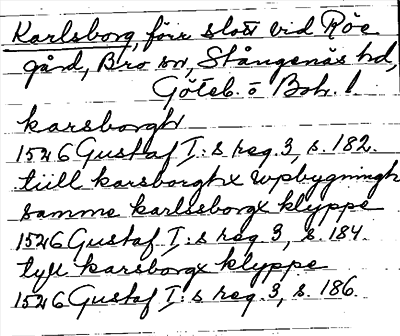 Karlsborg, förr slott vid Röe
gård, Bro sn, Stångenäs hd,
Göteb. o Boh. l.
karsborgh
1526 Gustaf I:s reg. 3, s. 182.
tiill karsborghx wpbygningh
samme karlseborgx klyppe
1526 Gustaf I:s reg. 3, s. 184.
tyll karsborgx klyppe
1526 Gustaf I:s reg. 3, s. 186.